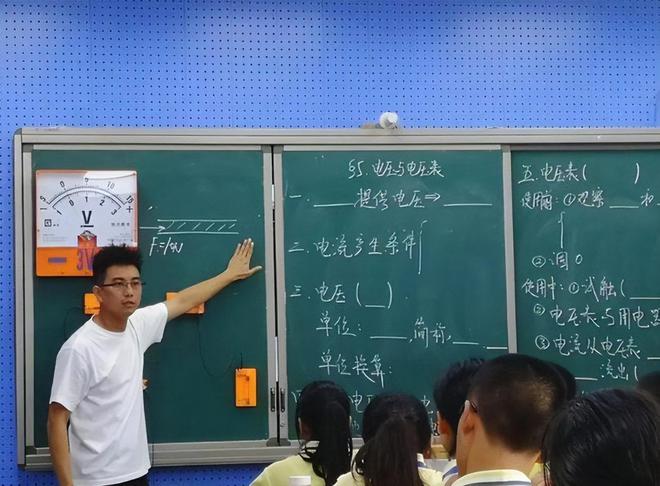 5 0 5 10 15
1 0 1 2 3
V
3V
F=10N
§5.电压与电压表
一. ____提供电压⇒____
二.电流产生条件
三.电压(__)
单位:____,简称,____
单位换算:
五.电压表( )
使用前:①观察____和
②调0
使用中:①试触(
②电压表与用电器
③电流从电压表____
____流出(